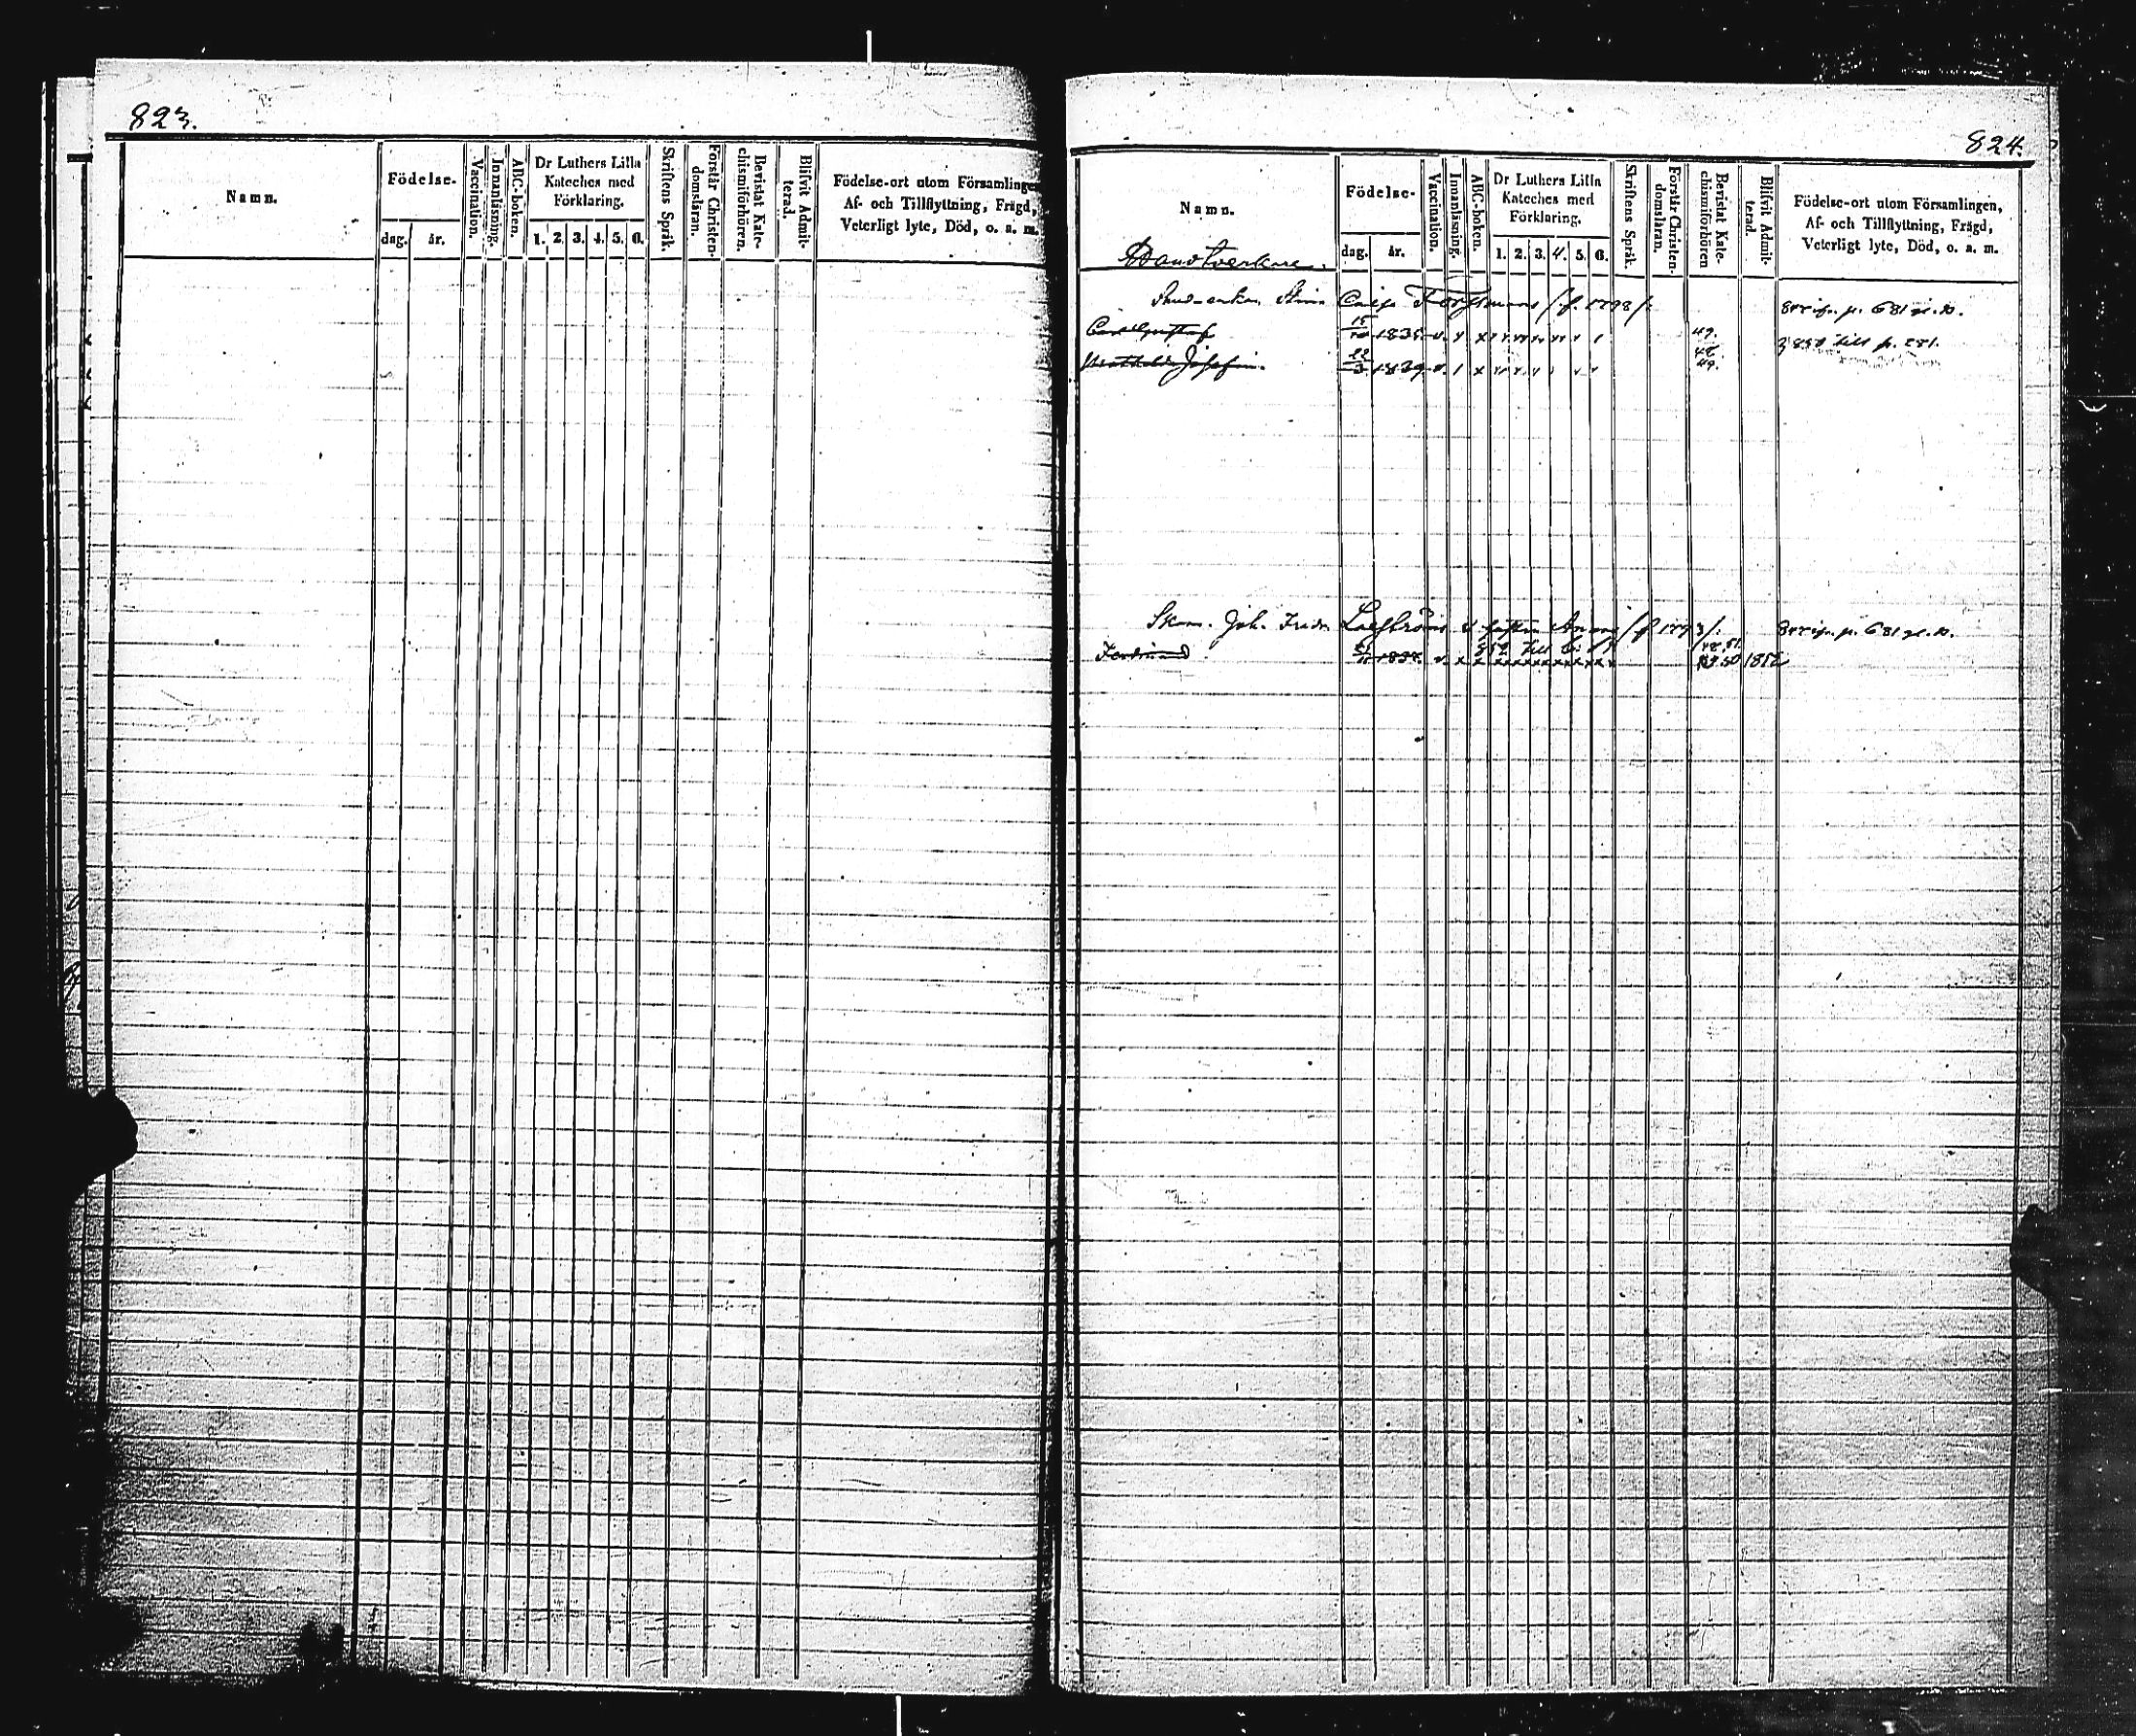 823.
Namn.
Födelse-
dag. år.
Vaccination.
Innanläsning.
ABC-boken.
Dr Luthers Lilla
Kateches med
Förklaring.
1. 2. 3. 4. 5. 6.
Skriftens Språk.
Förstår Christen-
domsläran.
Bevistat Kate-
chismiförhören.
Blifvit Admit-
terad.
Födelse-ort utom Församlingen
Af- och Tillflyttning, Frägd,
Veterligt lyte, Död, o. s. m.
824.
Namn.
Födelse-
dag. år.
Vaccination.
Innanläsning.
ABC-boken.
Dr Luthers Lilla
Kateches med
Förklaring.
1. 2. 3. 4. 5. 6.
Skriftens Språk.
Förstår Christen-
domsläran.
Bevistat Kate-
chismiförhören
Blifvit Admit-
terad.
Födelse-ort utom Församlingen,
Af- och Tillflyttning, Frägd,
Veterligt lyte, Död, o. a. m.
Handtverkare.
Caisa Forssmans /f. 1798/: p. 681
Carl Gustaf 1835 v. 49. till p.
Mathilda Josefina. 22/3 1839 v. 48. 49.
Skom. Joh. Fredr. Lagströms Anna p. 681
Ferdinand 1834. v. x x 1852